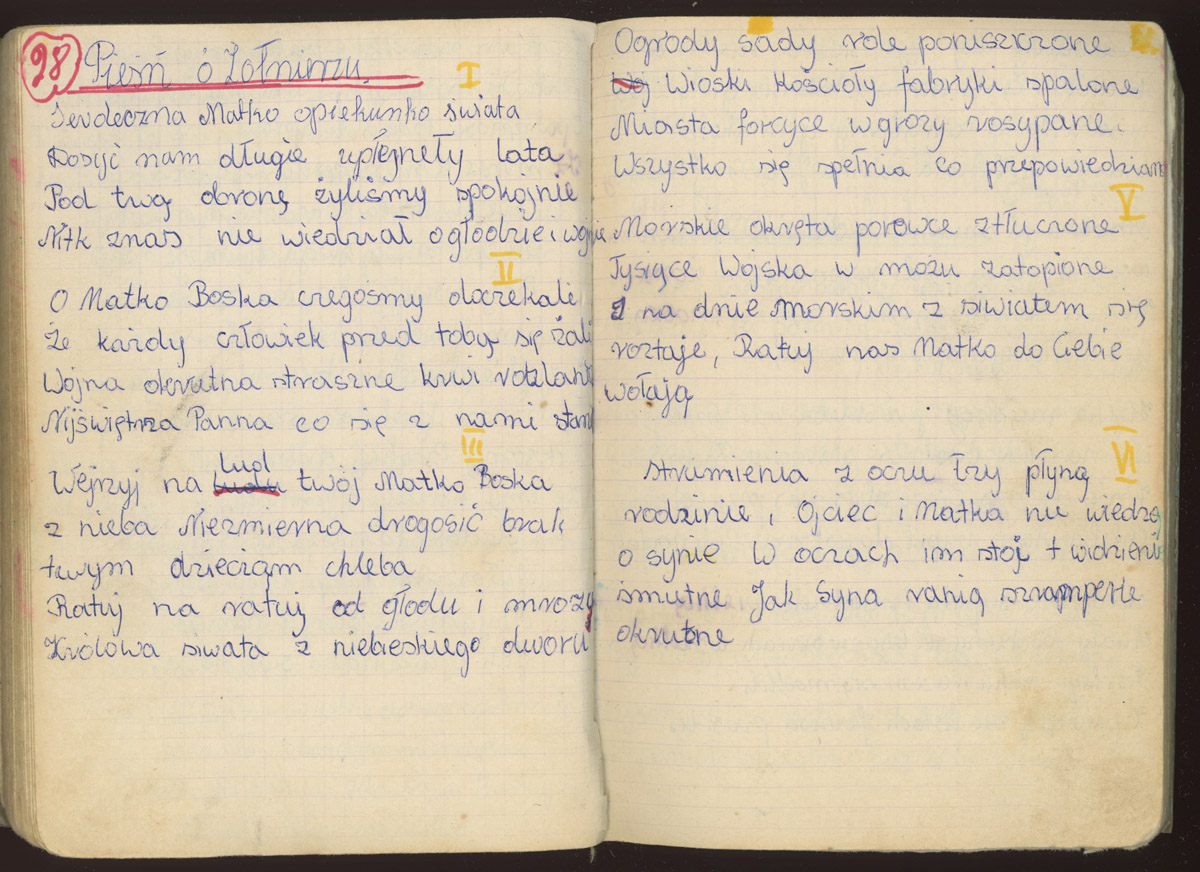 98 Pieśń ó Żołnirzu.
I
Serdeczna Matko opiekunko świata
Dosyć nam długie upłęneły lata
Pod twą obronę żyliśmy spokojnie
Nitk znas nie wiedział ogłodzie i wojnie
II
O Matko Boska czegośmy doczekali
Że każdy człowiek pred tobą się żali
Wojna okrutna straszne krwi rozlani
Nijświętrza Panna co się z nami stani
III
Wejrzyj na ludu lud twój Matko Boska
z nieba Niezmierna drogosić brak
twym dziecząm chleba
Ratuj na ratuj od głodu i mrozu
Królowa siwata z niebieskiego dworu
Ogrody sady role poniszczone
Woj Wioski Kościoły fabryki spalone
Miasta forcyce w gruzy rosypane.
Wszystko się spełnia co przepowiedziane
V
Morskie okręta porowce ztłuczone
Tysiące Wojska w możu zatopione
I na dnie morskim z siwiatem się
roztaje, Ratuj nas Matko do Ciebie
wołają
VI
strumienia z oczu łzy płyną
rodzinie, Ojciec i Matka nie wiedzą
o synie W oczach im stoj + widzenie
smutne Jak Syna ranią szrapnerle
okrutne